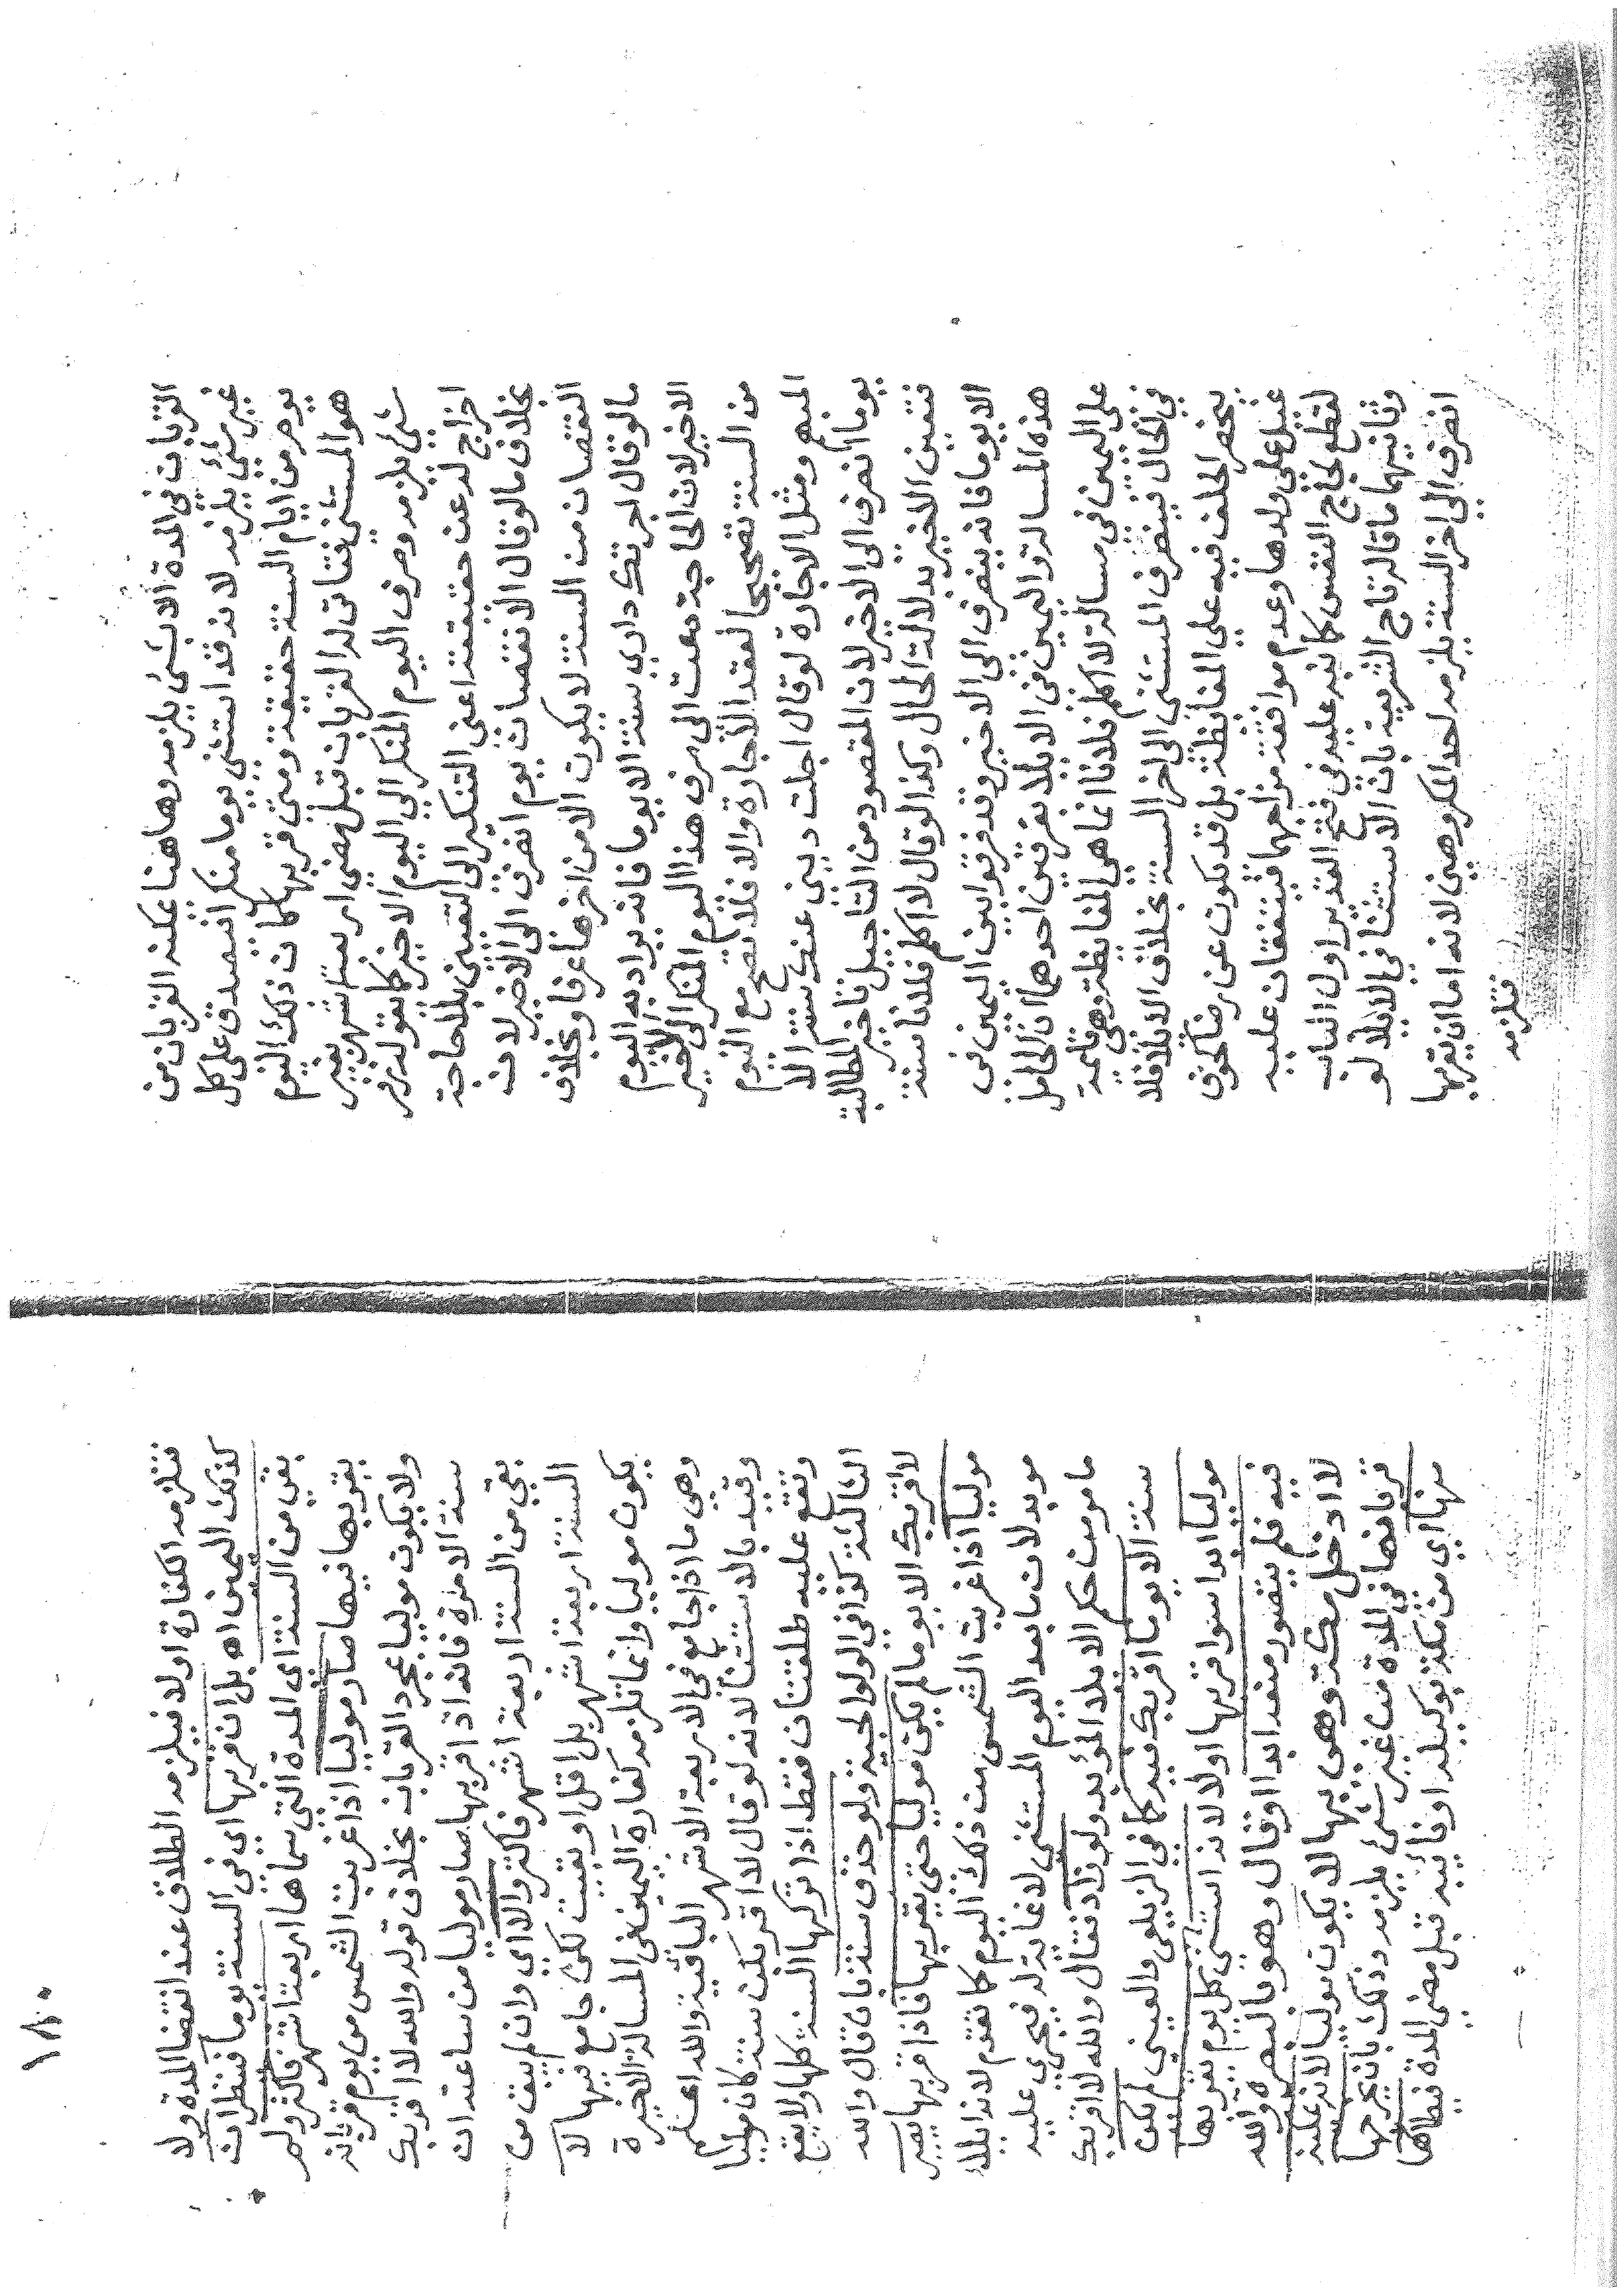 القربان في المدة الا بشئ يلزمه وهاهنا يمكنه القربان من
غير شئ يلزمه لانه قد استثنى يوما منكرا فيصدق على كل
يوم من ايام السنة حقيقة ومتى قربها كان ذلك اليوم
هو المستثنى فتاتى له القربان قبل مضي اربعة اشهر بغير
شئ يلزمه وصرف اليوم المنكر الى اليوم الاخير كما يقوله زفر
اخراج له عن حقيقته اعنى التنكير الى التعيين بلا حاجة
بخلاف ما لو قال الا نقصان يوم انصرف الى الاخير لان
النقصان من السنة لا يكون الا من اخرها عرفا وبخلاف
ما لو قال اجرتك داري سنة الا يوما فانه يراد به اليوم
الاخير لان الحاجة دعت الى صرف هذا اليوم المنكر الى الاخير
من السنة تصحيحا لعقد الاجارة والا فلا تصح مع اليوم
المبهم ومثل الاجارة لو قال اجلت ديني عنك سنة الا
يوما انصرف الى الاخير لان المقصود من التاجيل تاخير المطالبة
فتعين الاخير بدلالة الحال وكذا لو قال لا اكلم فلانا سنة
الا يوما فانه ينصرف الى الاخير وقد فرقوا بين اليمين في
هذه المسالة واليمين في الايلا بفرقين احدهما ان الحامل
على اليمين في مسالة لا اكلم فلانا انما هي المغايظة وهي قائمة
في الحال فينصرف المستثنى الى اخر السنة بخلاف الايلا فلا
ينحصر الحلف فيه على المغايظة بل قد يكون عن رضا كخوف
غيل على ولدها وعدم موافقة مزاجهما فيتفقان عليه
لقطع لجاج النفس كما نبه عليه في فتح القدير اول الباب
وثانيهما ما قاله تاج الشريعة بان الاستثنا في الايلا لو
انصرف الى اخر السنة يلزمه احد المكروهين لانه اما ان يقربها
فتلزمه
١٨٠
فتلزمه الكفارة او لا فيلزمه الطلاق عند انقضا المدة ولا
كذلك اليمين اه بل ان قربها اي في السنة يوما فينظر ان
بقي من السنة اي المدة التي سماها اربعة اشهر فاكثر ولم
يقربها فيها صار موليا اذا غربت الشمس من يوم قربانه
ولا يكون موليا بمجرد القربان بخلاف قوله والله لا اقربك
سنة الا مرة فانه اذا قربها صار موليا من ساعته ان
بقي من السنة اربعة اشهر فاكثر والا اي وان لم يبق من
السنة اربعة اشهر بل اقل او بقيت لكن جامع فيها لا
يكون موليا وانما تلزمه كفارة اليمين في المسالة الاخيرة
وهي ما اذا جامع في الاربعة الاشهر الباقية والله اعلم
وقيد بالاستثنا لانه لو قال لا اقربك سنة كان موليا
وتقع عليه طلقتان فقط اذا تركها السنة كلها ولا يقع
الثالثة كذا في الولوالجية ولو حذف سنة بان قال والله
لا اقربك الا يوما لم يكن موليا حتى يقربها فاذا قربها يصير
موليا اذا غربت الشمس من ذلك اليوم كما تقدم لانه ايلاء
موبد لان ما بعد اليوم المستثنى لا غاية له فيجري عليه
ما مر من حكم الايلا المؤبد ولو زاد فقال والله لا اقربك
سنة الا يوما اقربك فيه كما في الزيلعي والعيني لم يكن
موليا ابدا سوا قربها او لا لانه استثنى كل يوم يقربها
فيه فلم يتصور منعه ابدا او قال وهو بالبصرة والله
لا ادخل مكة وهي بها لا يكون موليا لانه يمكنه
قربانها في المدة من غير شئ يلزمه وذلك بان يخرجها
منها اي من مكة بوكيله او نائبه قبل مضي المدة فيطاها